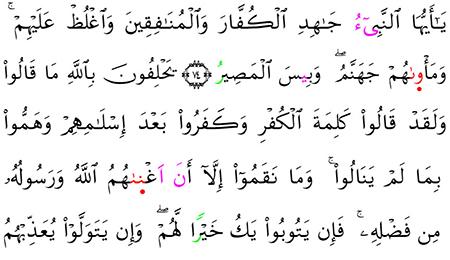 يَٰٓأَيُّهَا ٱلنَّبِيٓءُ جَٰهِدِ ٱلۡكُفَّارَ وَٱلۡمُنَٰفِقِينَ وَٱغۡلُظۡ عَلَيۡهِمۡۚ
وَمَأۡوٜىٰهُمۡ جَهَنَّمُۖ وَبِيسَ ٱلۡمَصِيرُ ٧٤ يَحۡلِفُونَ بِٱللَّهِ مَا قَالُواْ
وَلَقَدۡ قَالُواْ كَلِمَةَ ٱلۡكُفۡرِ وَكَفَرُواْ بَعۡدَ إِسۡلَٰمِهِمۡ وَهَمُّواْ
بِمَا لَمۡ يَنَالُواْۚ وَمَا نَقَمُوٓاْ إِلَّآ أَنَ اَغۡنٜىٰهُمُ ٱللَّهُ وَرَسُولُهُۥ
مِن فَضۡلِهِۦۚ فَإِن يَتُوبُواْ يَكُ خَيۡرٗا لَّهُمۡۖ وَإِن يَتَوَلَّوۡاْ يُعَذِّبۡهُمُ